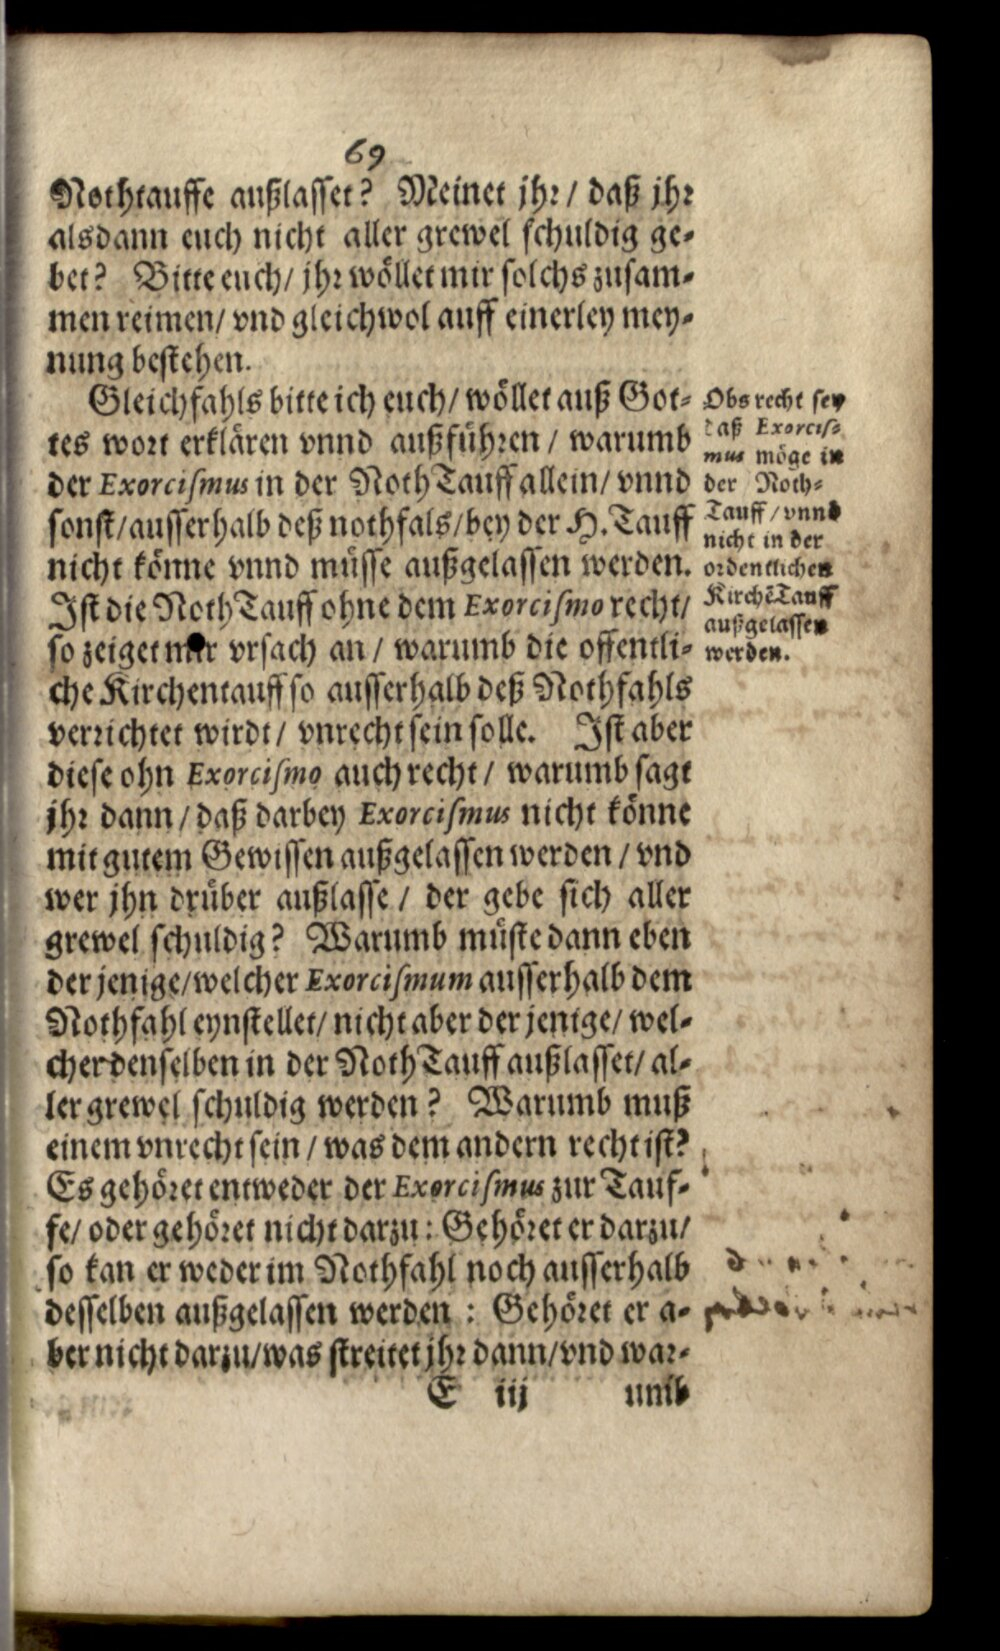 69
Nothtauffe außlasset? Meinet jhr / daß jhr
alsdann euch nicht aller grewel schuldig ge-
bet? Bitte euch/ jhr wöllet mir solchs zusam-
men reimen/ vnd gleichwol auff einerley mey-
nung bestehen.
Gleichfahls bitte ich euch/ wöllet auß Got-
tes wort erklären vnnd außführen / warumb
der Exorcismus in der NothTauff allein/ vnnd
sonst/ausserhalb deß nothfals/bey der H. Tauff
nicht könne vnnd müsse außgelassen werden.
Ist die NothTauff ohne dem Exorcismo recht/
so zeiget mir vrsach an / warumb die offentli-
che Kirchentauff so ausserhalb deß Nothfahls
verrichtet wirdt / vnrecht sein solle. Ist aber
diese ohn Exorcismo auch recht / warumb sagt
jhr dann / daß darbey Exorcismus nicht könne
mit gutem Gewissen außgelassen werden / vnd
wer jhn drüber außlasse / der gebe sich aller
grewel schuldig? Warumb müste dann eben
der jenige/welcher Exorcismum ausserhalb dem
Nothfahl eynstellet/ nicht aber der jenige/ wel-
cher denselben in der NothTauff außlasset/ al-
ler grewel schuldig werden? Warumb muß
einem vnrecht sein / was dem andern recht ist?
Es gehöret entweder der Exorcismus zur Tauf-
fe/ oder gehöret nicht darzu: Gehöret er darzu/
so kan er weder im Nothfahl noch ausserhalb
desselben außgelassen werden : Gehöret er a-
ber nicht darzu/was streitet jhr dann/vnd war-
E iij umb
Obs recht sey
daß Exorcis-
mus möge in
der Noth-
Tauff / vnnd
nicht in der
ordentlichen
KirchēTauff
außgelassen
werden.